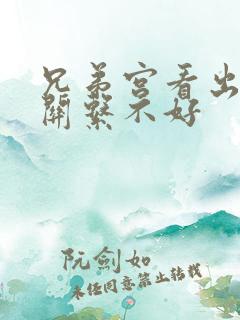 兄弟宮看出
關繫不好
阮劍如
未经同意禁止转载